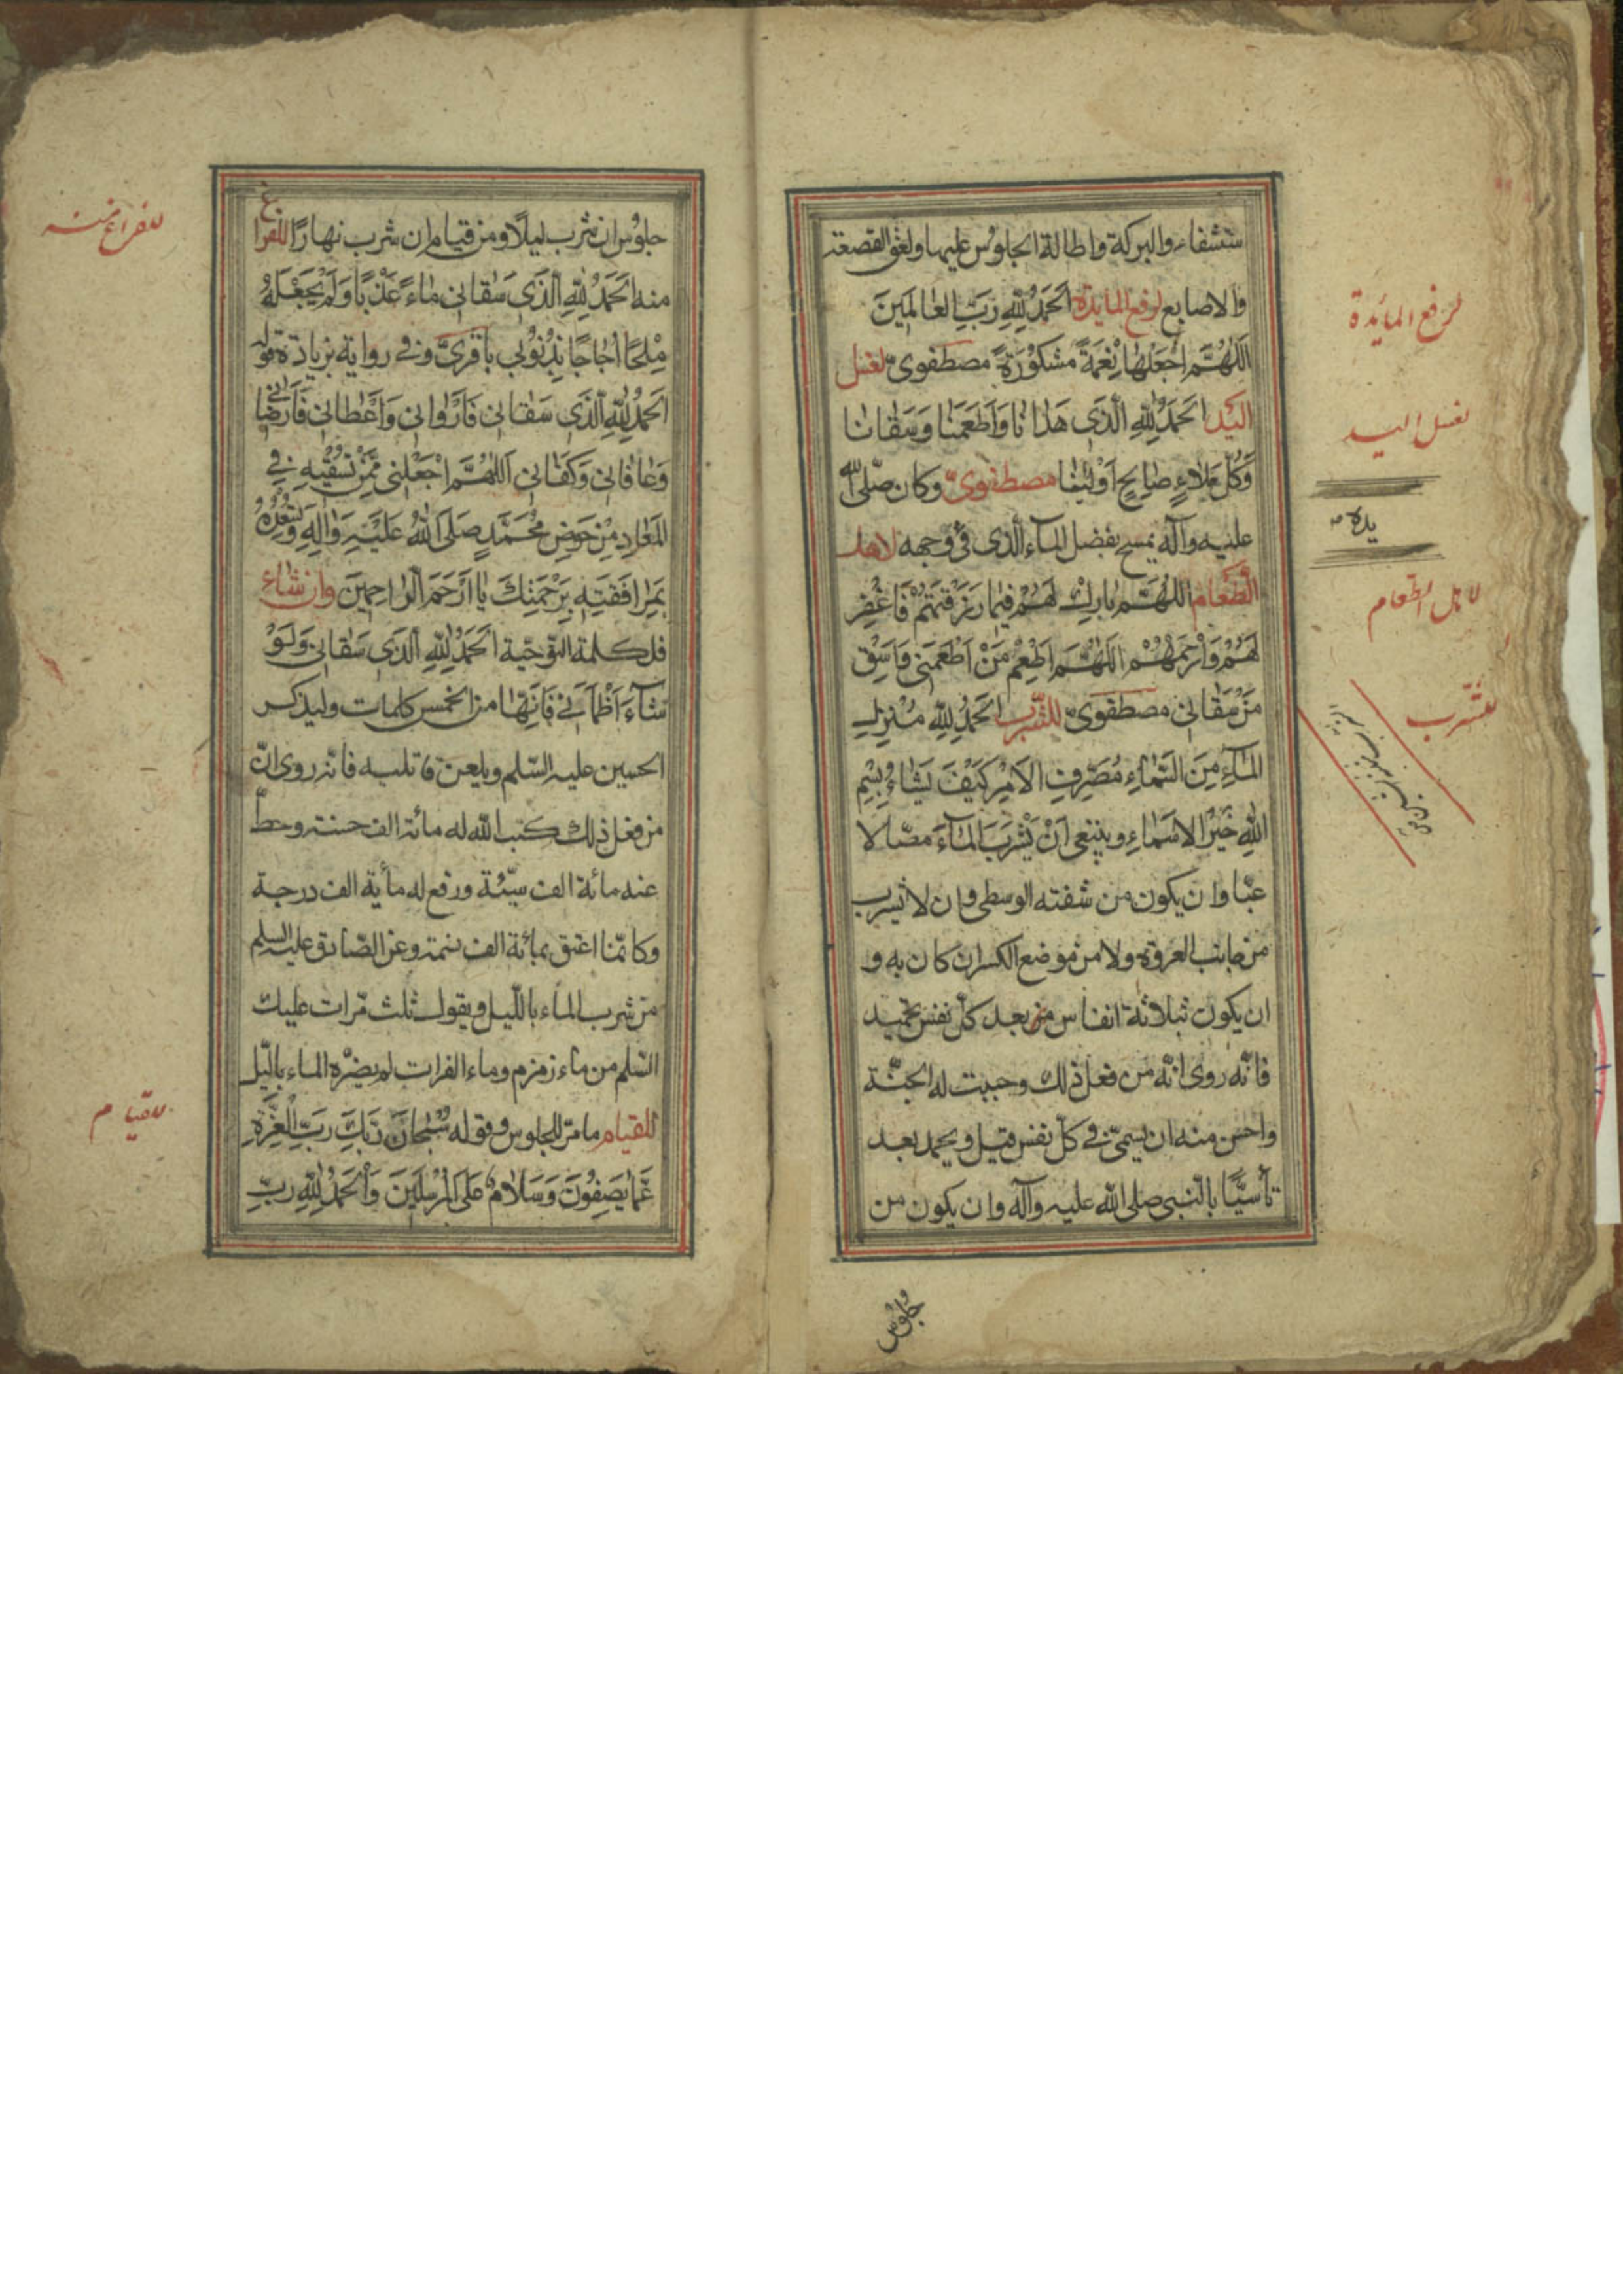 ستشفاء والبركة واطالة الجلوس عليها ولعق القصعة
والاصابع لرفع المایدة اَلْحَمْدُ لِلّٰهِ رَبِّ العالَمينَ
اَللّٰهُمَّ اجْعَلْها نِعْمَةً مَشْكُوْرَةً مصطفوىّ لغسل
اليَد اَلحَمْدُ لِلّٰهِ الَّذى هَدانا وَاَطْعَمَنا وَسَقانا
وَكُلَّ بَلاءٍ صالِحٍ اَوْلَيْنا مصطفوىّ وكان صلّى الله
عليه وآله يمسح بفضل الماء الّذى فى وجهه لاهل
الطّعام اَللّٰهُمَّ بارِكْ لَهُمْ فيما رَزَقْتَهُمْ فَاغْفِرْ
لَهُمْ وَارْحَمْهُمْ اَللّٰهُمَّ اَطْعِمْ مَنْ اَطْعَمَنى وَاسْقِ
مَنْ سَقانى مصطفوىّ للشّرب اَلحَمْدُ لِلّٰهِ مُنْزِلِ
الماءِ مِنَ السَّماءِ مُصَرِّفِ الاَمْرِ كَيْفَ يَشاءُ بِسْمِ
اللّٰهِ خَيْرِ الاَسْماءِ وينبغى اَنْ يَشْرَبَ الماءَ مصّا لا
عبّا وان يكون من شفته الوسطى وان لا يشرب
من جانب العروة ولا من موضع الكسران كان به و
ان يكون بثلاثة انفاس من بعد كلّ نفس تحميد
فانّه روى انّه من فعل ذلك وجبت له الجنّة
واحسن منه ان يسمىّ فى كلّ نفس قبل ويحمد بعد
تأسّيًا بالنّبى صلى الله عليه وآله وان يكون من
جلوس
لرفع المائدة
لغسل اليد
يده
لاهل الطّعام
للشّرب
جلوس ان شرب ليلًا ومن قيام ان شرب نهارًا للفراغ
منه اَلحَمْدُ لِلّٰهِ الَّذى سَقانى ماءً عَذْبًا وَلَمْ يَجْعَلْهُ
مِلْحًا اُجاجًا بِذُنُوْبى باقرىّ وفى رواية بزيادة قوله
اَلحَمْدُ لِلّٰهِ الَّذى سَقانى فَاَرْوانى وَاَعْطانى فَاَرْضانى
وَعافانى وَكَفانى اَللّٰهُمَّ اجْعَلْنى مِمَّنْ تَسْقيهِ فى
المَعادِ مِنْ حَوْضِ مُحَمَّدٍ صَلَّى اللهُ عَلَيْهِ وَالِهِ وَتُسْعِدُهُ
بِمُرافَقَتِهِ بِرَحْمَتِكَ يا اَرْحَمَ الرّاحِمينَ وان شاء
قل كلمة النوحيّة اَلحَمْدُ لِلّٰهِ الَّذى سَقانى وَلَوْ
شاءَ اَظْمَاَنى فَاِنَّها من الخمس كلمات وليذكر
الحسين عليه السّلم ويلعن قاتليه فانّه روى انّ
من فعل ذلك كتب الله له مائة الف حسنة وحطّ
عنه مائة الف سيّئة ورفع له مأية الف درجة
وكانّما اعتق بمائة الف نسمة وعن الصّادق عليه السلم
من شرب الماء بالّليل ويقول ثلث مّرات عليك
السّلم من ماء زمزم وماء الفرات لم يضرّه الماء بالّيل
للقيام مامرّ للجلوس وقوله سُبْحانَ رَبِّكَ رَبِّ الْعِزَّةِ
عَمّا يَصِفُونَ وَسَلامٌ عَلَى المُرْسَلينَ وَالْحَمْدُ لِلّٰهِ رَبِّ
للفراغ منه
للقيام